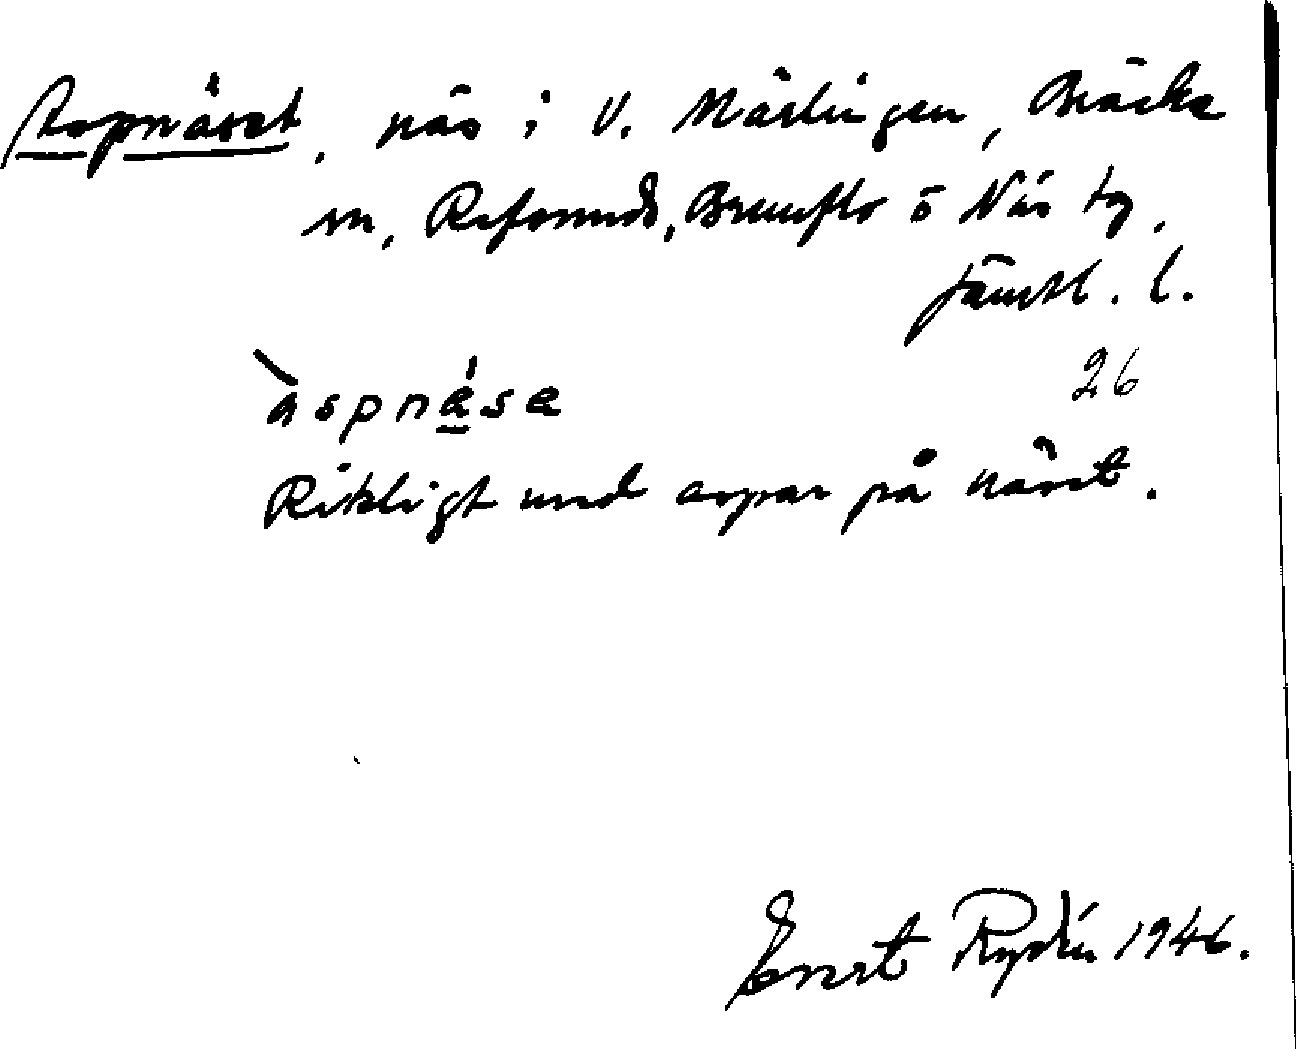 Aspnäset, näs i V. Mäslingen, Bräcke
sn, Refsunds, Brunflo o Näs tg,
Jämtl. l.
àspnä́se 26
Rikligt med aspar på näset.
Evert Rydén 1946.